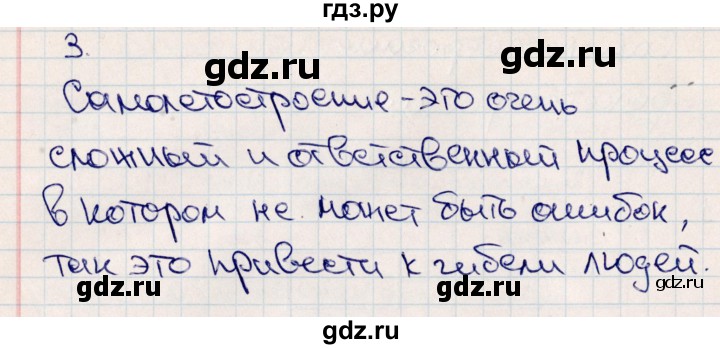 гдз.ру
3.
gdz.ru gdz.ru
Самолетостроение - это очень
сложный и ответственный процесс
gdz.ru gdz.ru
в котором не может быть ошибок,
так это привести к гибели людей.
gdz.ru gdz.ru gdz.ru
gdz.ru